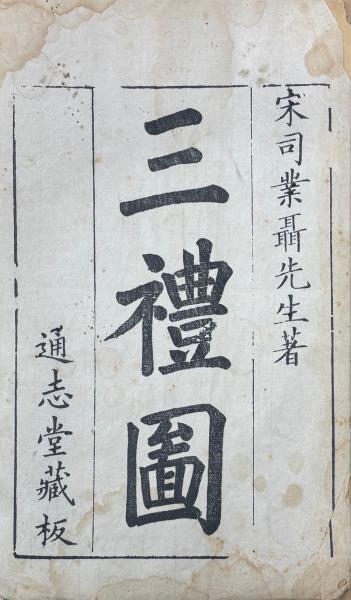 宋司業聶先生著
三禮圖
通志堂藏板